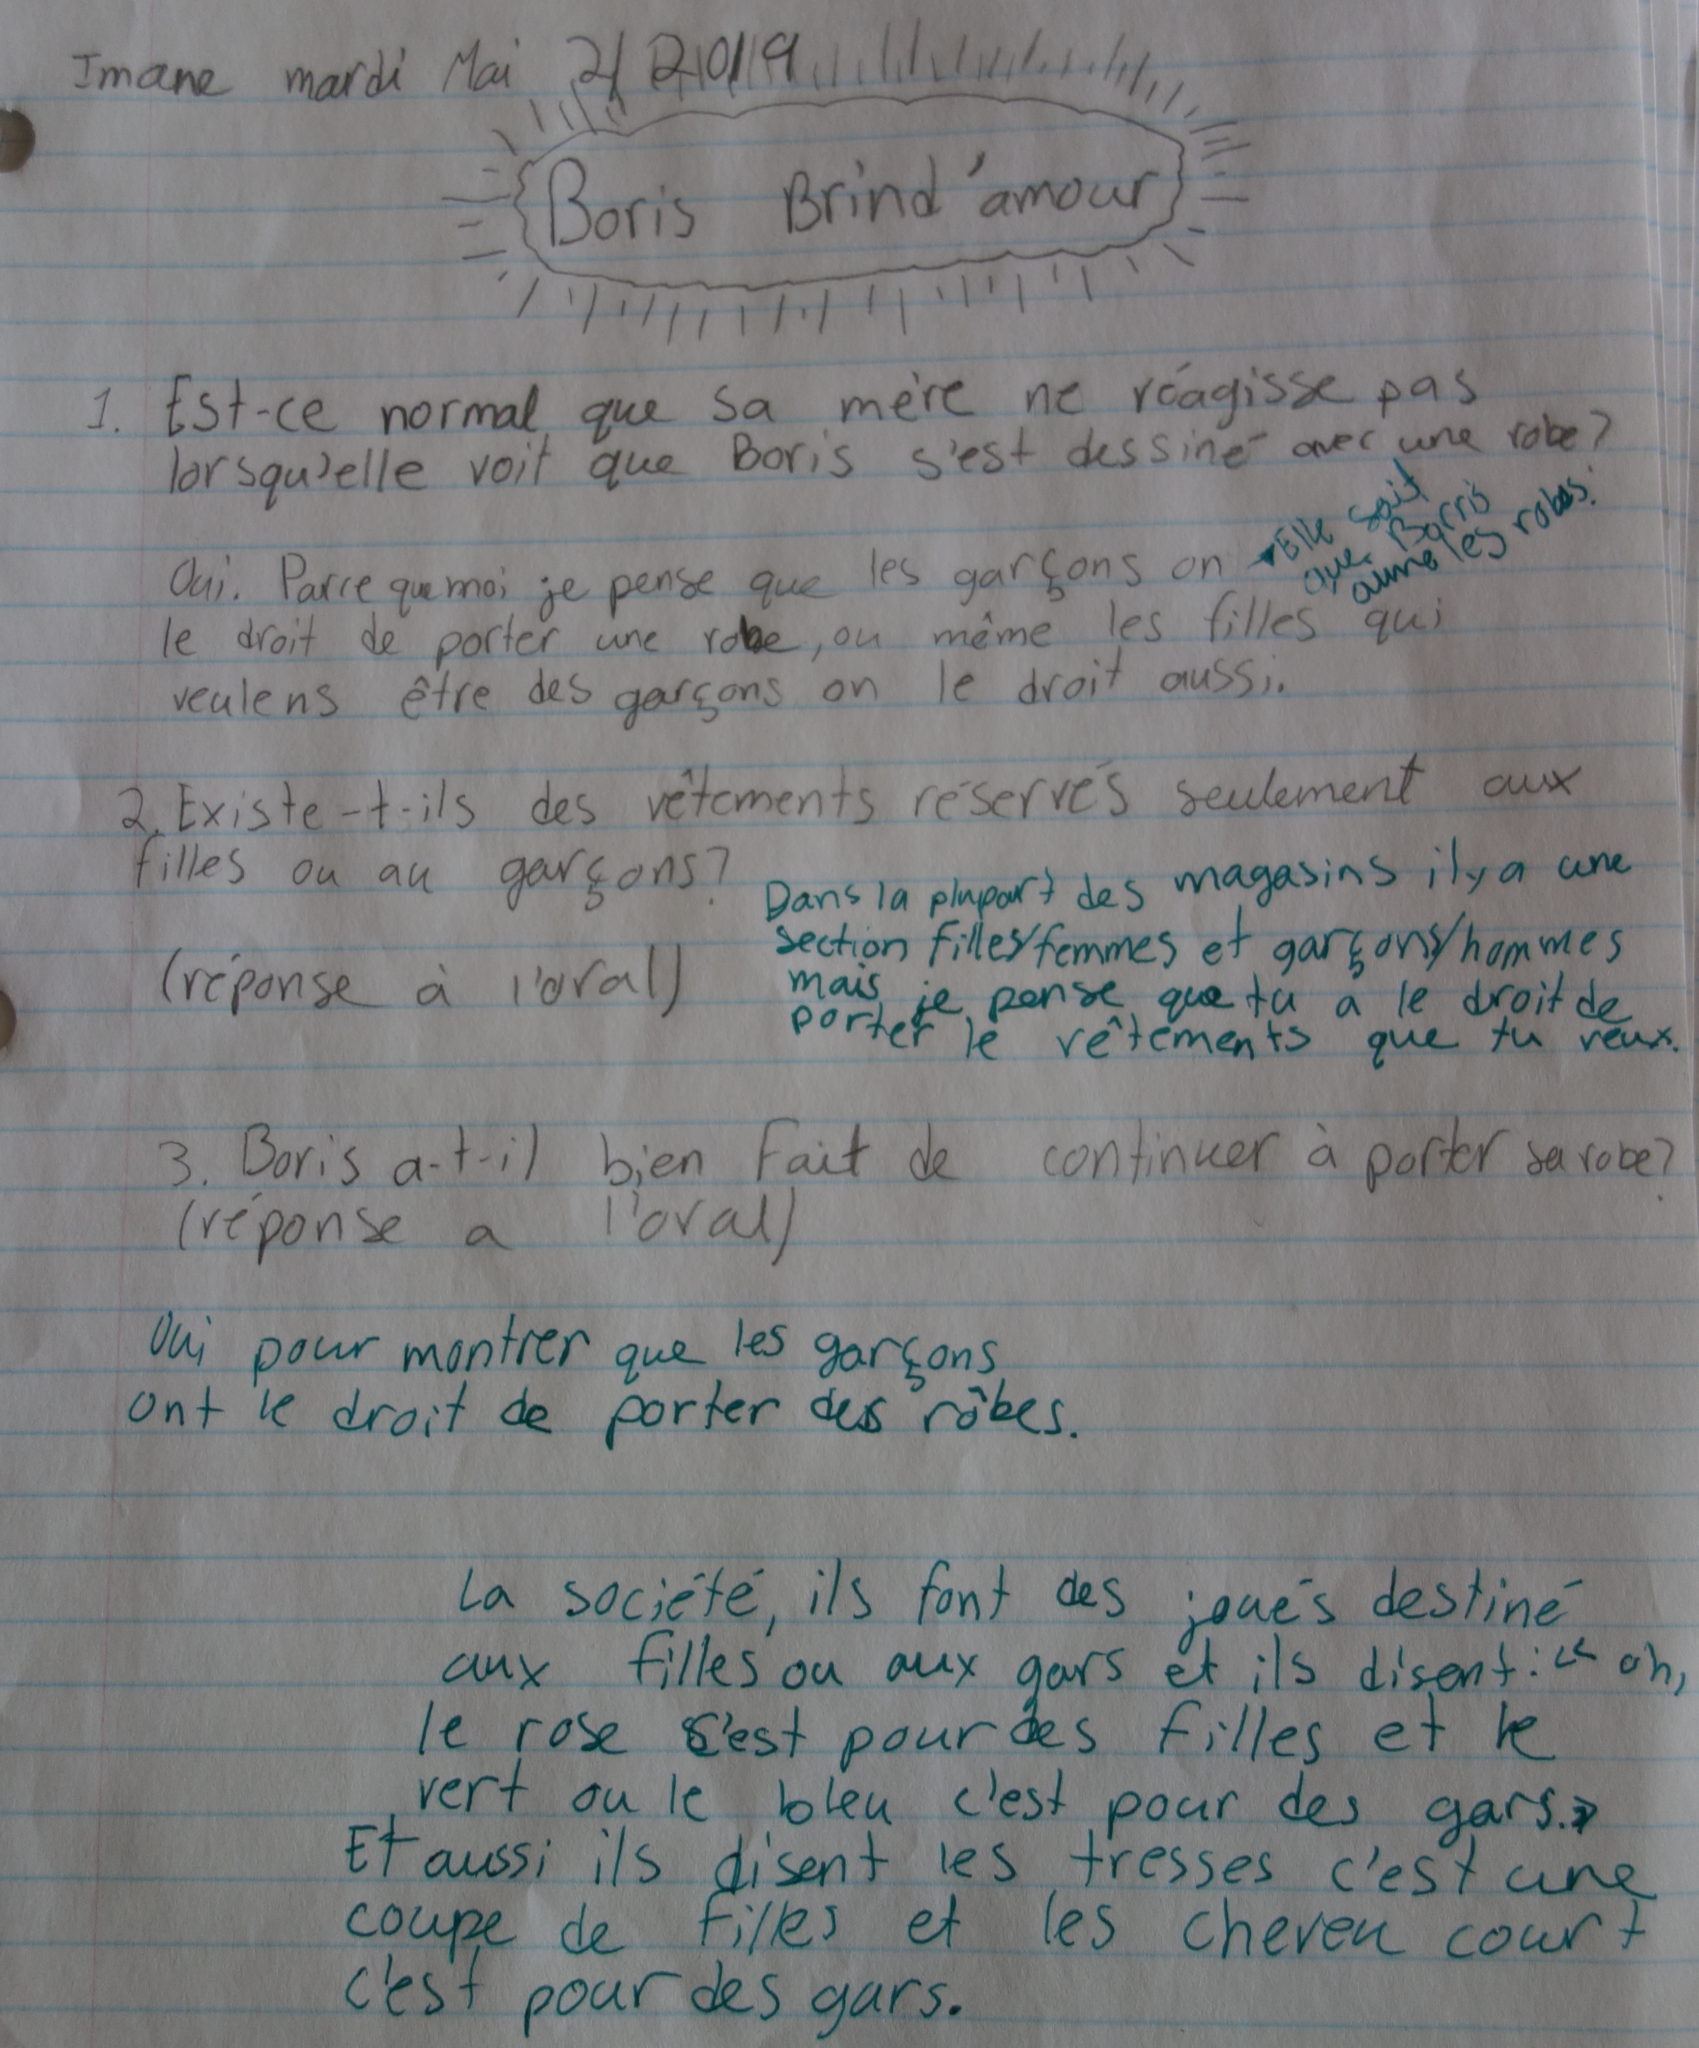 Imane mardi Mai 2/2019
Boris Brind'amour
1. Est-ce normal que sa mère ne réagisse pas
lorsqu'elle voit que Boris s'est dessiné avec une robe?
Oui. Parce que moi je pense que les garçons on
Elle sait
que Borris
aime les robes.
le droit de porter une robe, ou même les filles qui
veulens être des garçons on le droit aussi.
2. Existe-t-ils des vêtements réservés seulement aux
filles ou au garçons?
Dans la plupart des magasins il y a une
section filles/femmes et garçons/hommes
(réponse à l'oral)
mais je pense que tu a le droit de
porter le vêtements que tu veux.
3. Boris a-t-il bien fait de continuer à porter sa robe?
(réponse a l'oral)
Oui pour montrer que les garçons
ont le droit de porter des rôbes.
La société, ils font des joués destiné
aux filles ou aux gars et ils disent: « oh,
le rose c'est pour des filles et le
vert ou le bleu c'est pour des gars.»
Et aussi ils disent les tresses c'est une
coupe de filles et les cheveu court
c'est pour des gars.